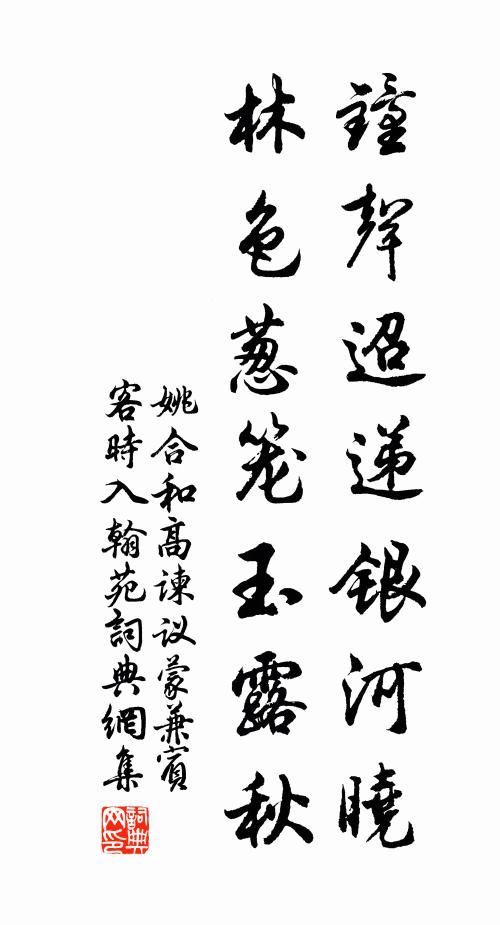 鐘聲迢递銀河曉
林色葱笼玉露秋
姚合和高諫议蒙兼賓
客時入翰苑詞典網集
詞典網印